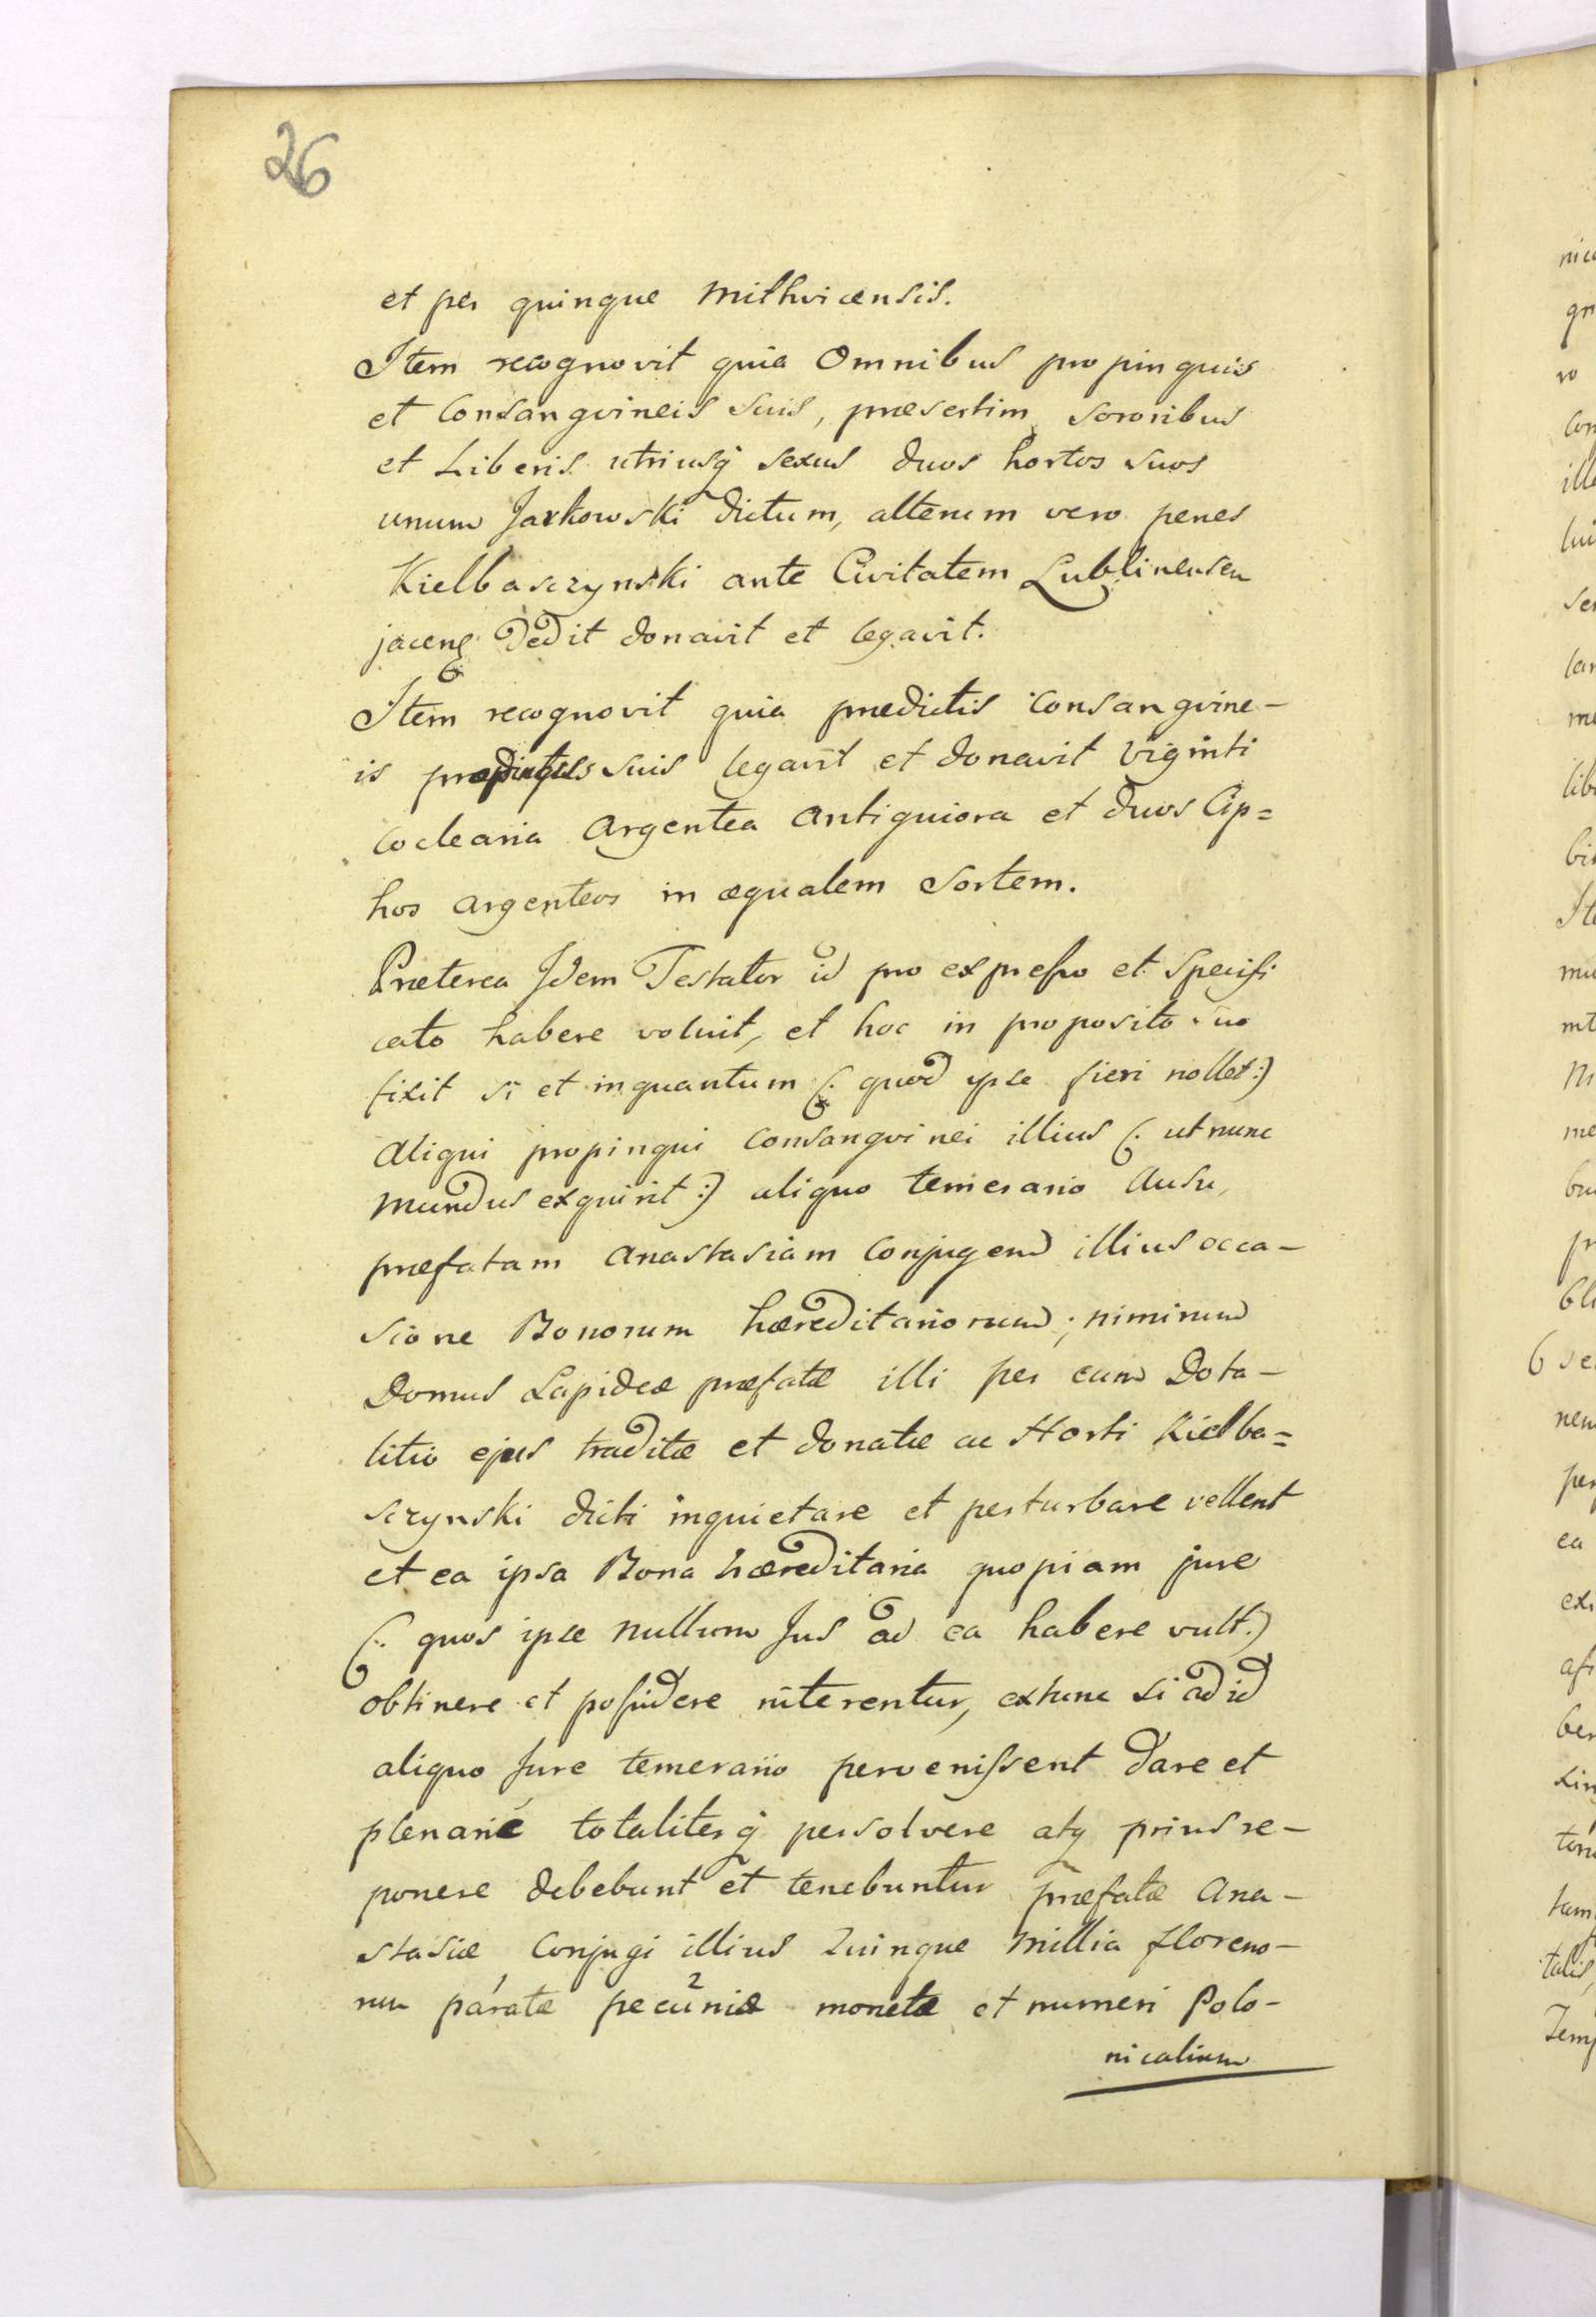 26
et per quinque Mithvicensis.
Item recognovit quia Omnibus propinquis
et Consangvineis suis, præsertim sororibus
et Liberis utriusq sexus duos hortos suos
unum Jarkowski dictum, alterum vero penes
Kielbasczynski ante Civitatem Lublinensem
jacen dedit donavit et legavit.
Item recognovit quia prædictis consangvine-
is suis legavit et donavit viginti
coclearia Argentea antiquiora et duos Cip=
hos argenteos in æqualem Sortem.
Præterea Idem Testator id pro expresso et Specifi
cato habere voluit, et hoc in proposito suo
fixit si et inquantum (: quod ipse fieri nollet :)
Aliqui propinqui Consangvinei illius (: ut nunc
mundus exquirit :) aliquo temerario Ausu,
præfatam Anastasiam Conjugem illius occa-
sione Bonorum hæreditariorum; nimirum
Domus Lapideæ præfatæ illi per eum Dota-
litio ejus traditæ et donatæ ac Horti Kielba=
sczynski dicti inquietare et perturbare vellent
et ea ipsa Bona hæreditaria quopiam jure
(: quos ipse nullum Jus ad ea habere vult :)
obtinere et possidere niterentur, extunc si ad id
aliquo Jure temerario pervenissent dare et
plenarié totaliterq persolvere atq prius re-
ponere debebunt et tenebuntur præfatæ Ana-
stasiæ Conjugi illius Quinque Millia floreno-
rum paratæ pecuniæ monetæ et numeri Polo-
nicalium